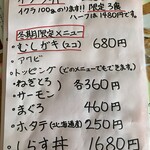 イクラ100gのります!! 限定3席
ハーフは1480円です。
冬期限定メニュー
むしガキ(2コ) 680円
・アワビ
・トッピング(どのメニューでもできます)
ねぎとろ 各360円
サーモン
まぐろ 460円
ホタテ(北海道産) 250円
しらす丼 1680円